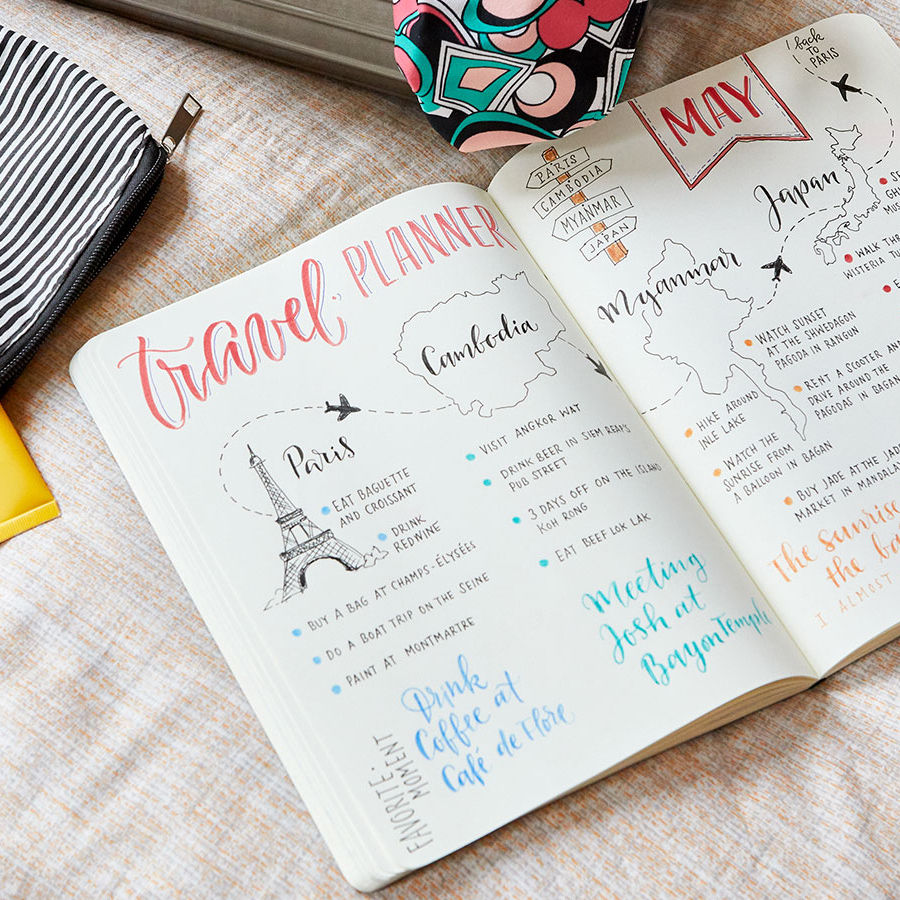 travel PLANNER
Cambodia
Paris
EAT BAGUETTE
AND CROISSANT
DRINK
REDWINE
BUY A BAG AT CHAMPS-ÉLYSÉES
DO A BOAT TRIP ON THE SEINE
PAINT AT MONTMARTRE
FAVORITE
MOMENT
Drink
Coffee at
Café de Flore
VISIT ANGKOR WAT
DRINK BEER IN SIEM REAP'S
PUB STREET
3 DAYS OFF ON THE ISLAND
KOH RONG
EAT BEEF LOK LAK
Meeting
Josh at
Bayon Temple
MAY
back
TO
PARIS
PARIS
CAMBODIA
MYANMAR
JAPAN
Japan
WALK THR
WISTERIA TU
Myanmar
WATCH SUNSET
AT THE SHWEDAGON
PAGODA IN RANGUN
RENT A SCOOTER AND
DRIVE AROUND THE
PAGODAS IN BAGAN
HIKE AROUND
INLE LAKE
WATCH THE
SUNRISE FROM
A BALLOON IN BAGAN
BUY JADE AT THE JADE
MARKET IN MANDALA
The sunrise
the ba
I ALMOST